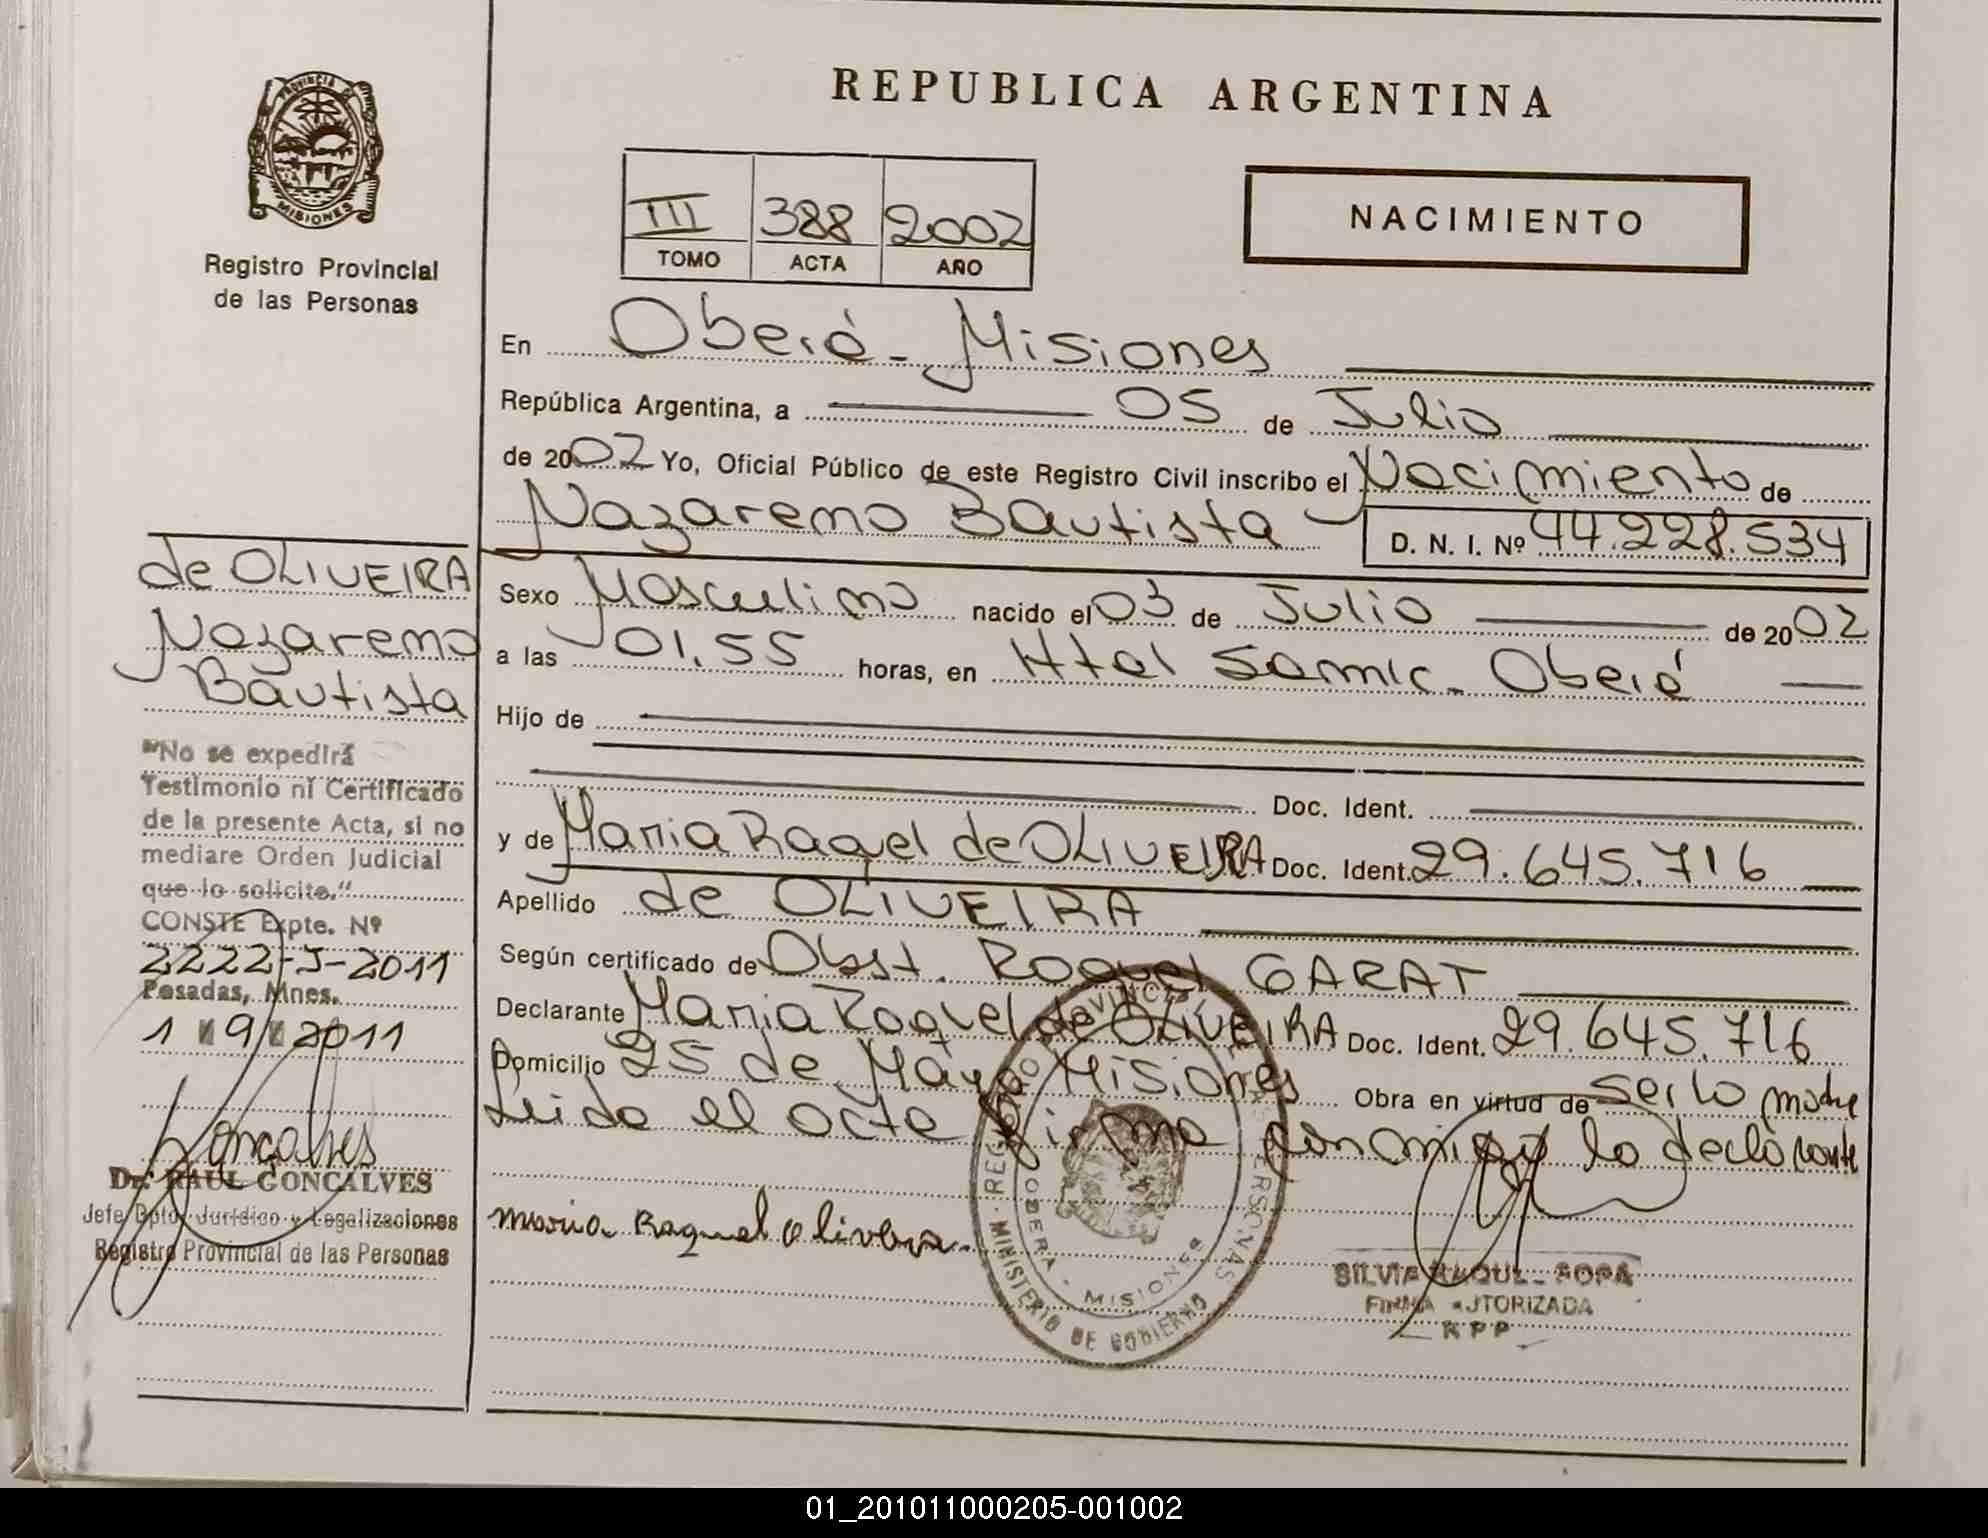 REPUBLICA ARGENTINA
PROVINCIA DE
MISIONES
Registro Provincial
de las Personas
III 388 2002
TOMO ACTA AÑO
NACIMIENTO
En Oberá - Misiones
República Argentina, a 05 de Julio
de 2002 Yo, Oficial Público de este Registro Civil inscribo el Nacimiento de
Nazareno Bautista D. N. I. Nº 44.228.534
Sexo Masculino nacido el 03 de Julio de 2002
a las 01.55 horas, en Htal Samic - Oberá
Hijo de
Doc. Ident.
y de Maria Raquel de OLIVEIRA Doc. Ident. 29.645.716
Apellido de OLIVEIRA
Según certificado de Obst. Raquel GARAT
Declarante Maria Raquel de OLIVEIRA Doc. Ident. 29.645.716
Domicilio 25 de Mayo Misiones Obra en virtud de ser la madre
Leida el acta firma conmigo la declarante
Maria Raquel Olivera.
REGISTRO PROVINCIAL DE LAS PERSONAS
MINISTERIO DE GOBIERNO
OBERA - MISIONES
SILVIA RAQUEL
FIRMA AUTORIZADA
R P P
de OLIVEIRA
Nazareno
Bautista
"No se expedirá
Testimonio ni Certificado
de la presente Acta, si no
mediare Orden Judicial
que lo solicite."
CONSTE Expte. Nº
2222-J-2011
Posadas, Mnes.
1 9 2011
Goncalves
Dr. RAUL GONCALVES
Jefe Dpto. Jurídico y Legalizaciones
Registro Provincial de las Personas
01_201011000205-001002